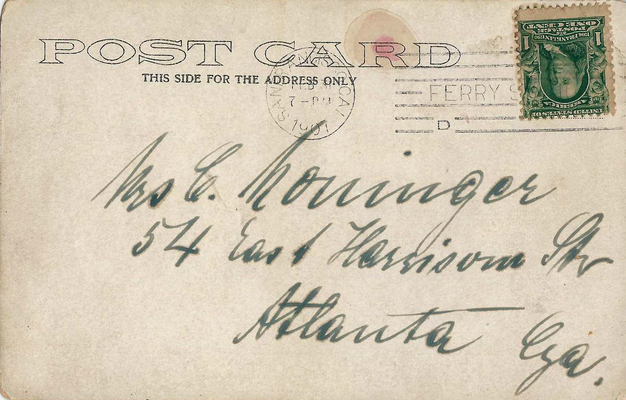 POST CARD
THIS SIDE FOR THE ADDRESS ONLY
SAN FRANCISCO, CAL
FEB
7-PM
FERRY S
D
1
POSTAGE
ONE CENT
UNITED STATES OF
Mrs C. Noninger
54 East Harrison Str
Atlanta Ga.